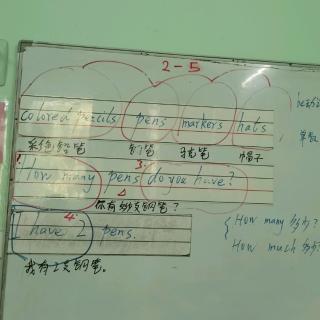 2-5
colored pencils pens markers hats
彩色铅笔 钢笔 马克笔 帽子
1. 3.
How many pens do you have?
你有多少支钢笔？
4.
I have 2 pens.
我有2支钢笔。
How many 多少?
How much 多少?